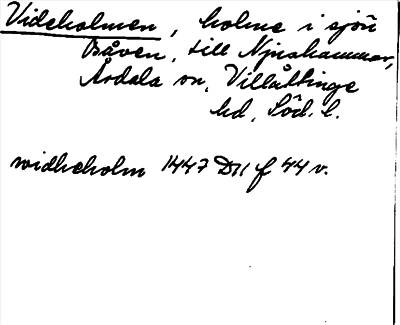 Videholmen, holme i sjön
Båven, till Njushammar,
Årdala sn, Villåttinge
hd, Söd. l.
widheholm 1447 D11 f 44 v.